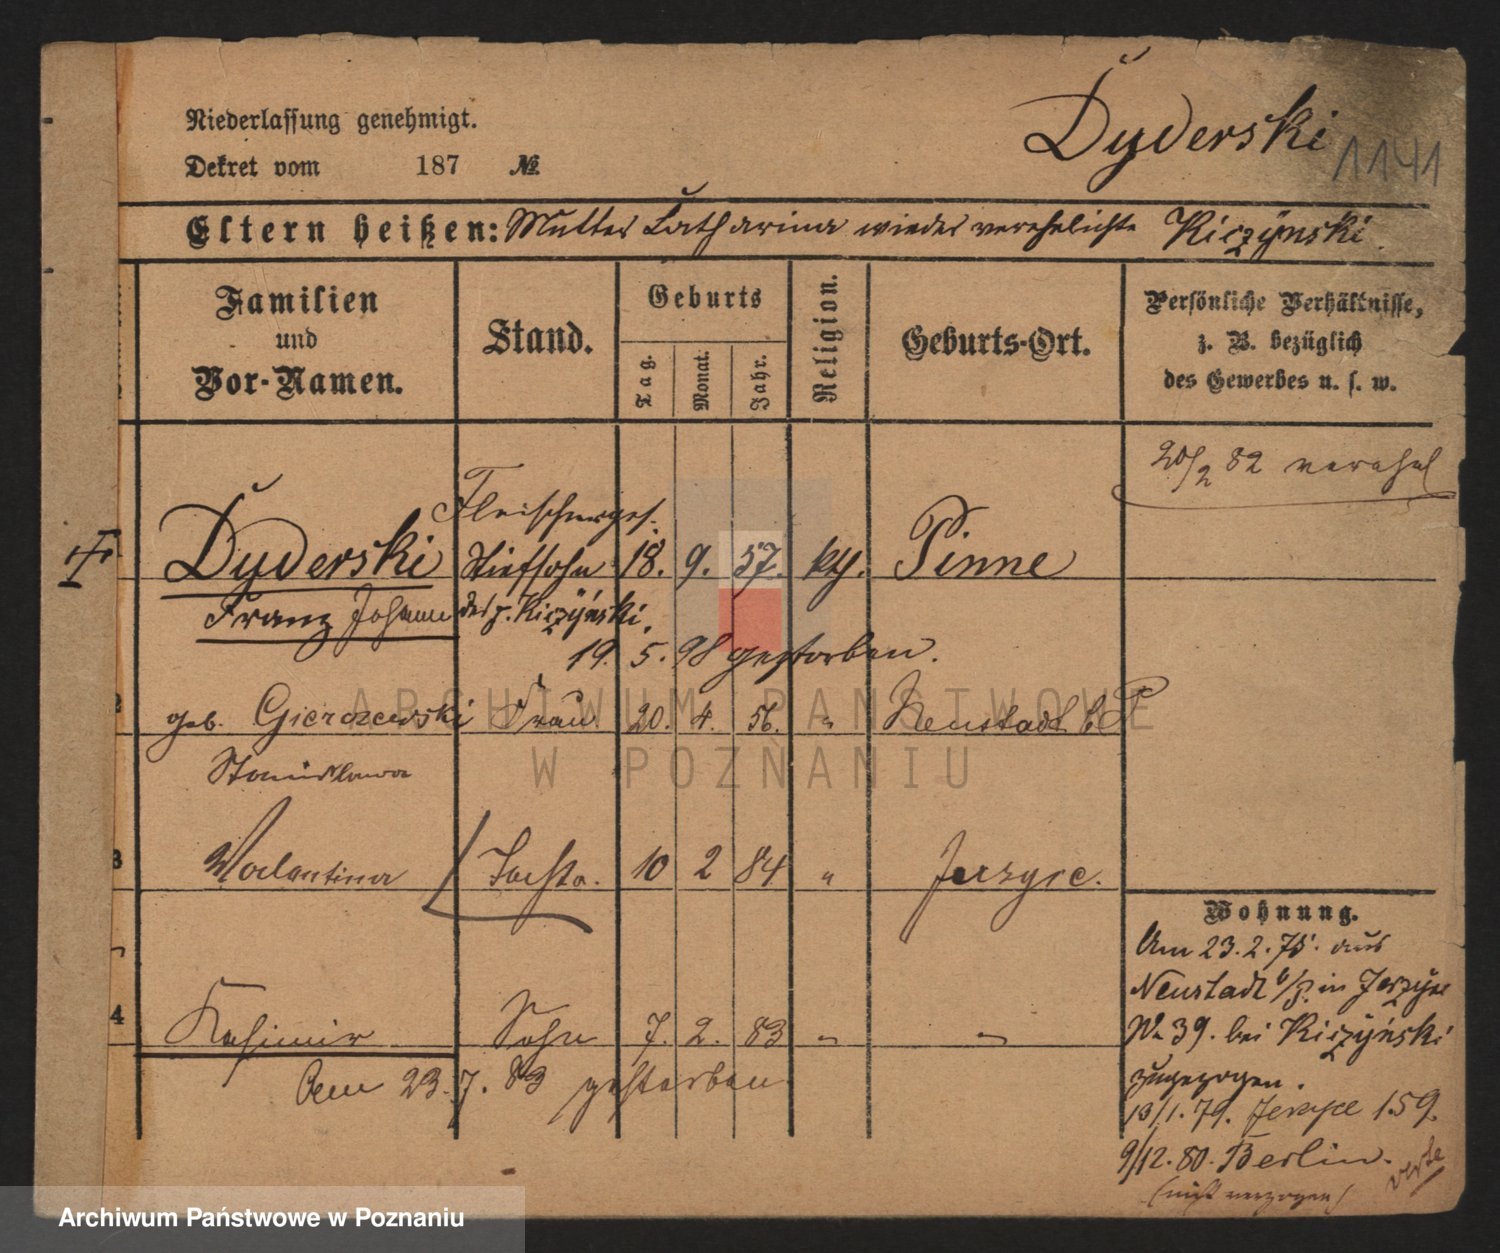 Dyderski
1141
Niederlassung genehmigt.
Dekret vom 187 №
Eltern heißen: Mutter Catharina wieder verehelichte Kiczÿnski.
Familien und Vor-Namen.
Stand.
Geburts
Tag. Monat. Jahr.
Religion.
Geburts-Ort.
Persönliche Verhältnisse,
z. B. bezüglich
des Gewerbes u. s. w.
20/2 82 verehel
Fleischerges.
Dyderski Stiefsohn 18. 9. 57. kth. Pinne
Franz Johann des p. Kiczÿnski.
19. 5. 98 gestorben.
2 geb. Gierszewski Frau 20. 4. 56. " Neustadt b. P
Stanislawa
3 Valentina Tochter. 10 2 84 " Jerzyce.
4 Kasimir Sohn 7. 2. 83 " "
Am 23. 7. 83 gestorben
Wohnung.
Am 23. 2. 75. aus
Neustadt b/P. in Jerzyce
№ 39. bei Kiczÿński
zugezogen.
13/1. 79. Jerzyce 159.
9/12. 80. Berlin.
(nicht verzogen)
verte
ARCHIWUM PAŃSTWOWE
W POZNANIU
Archiwum Państwowe w Poznaniu